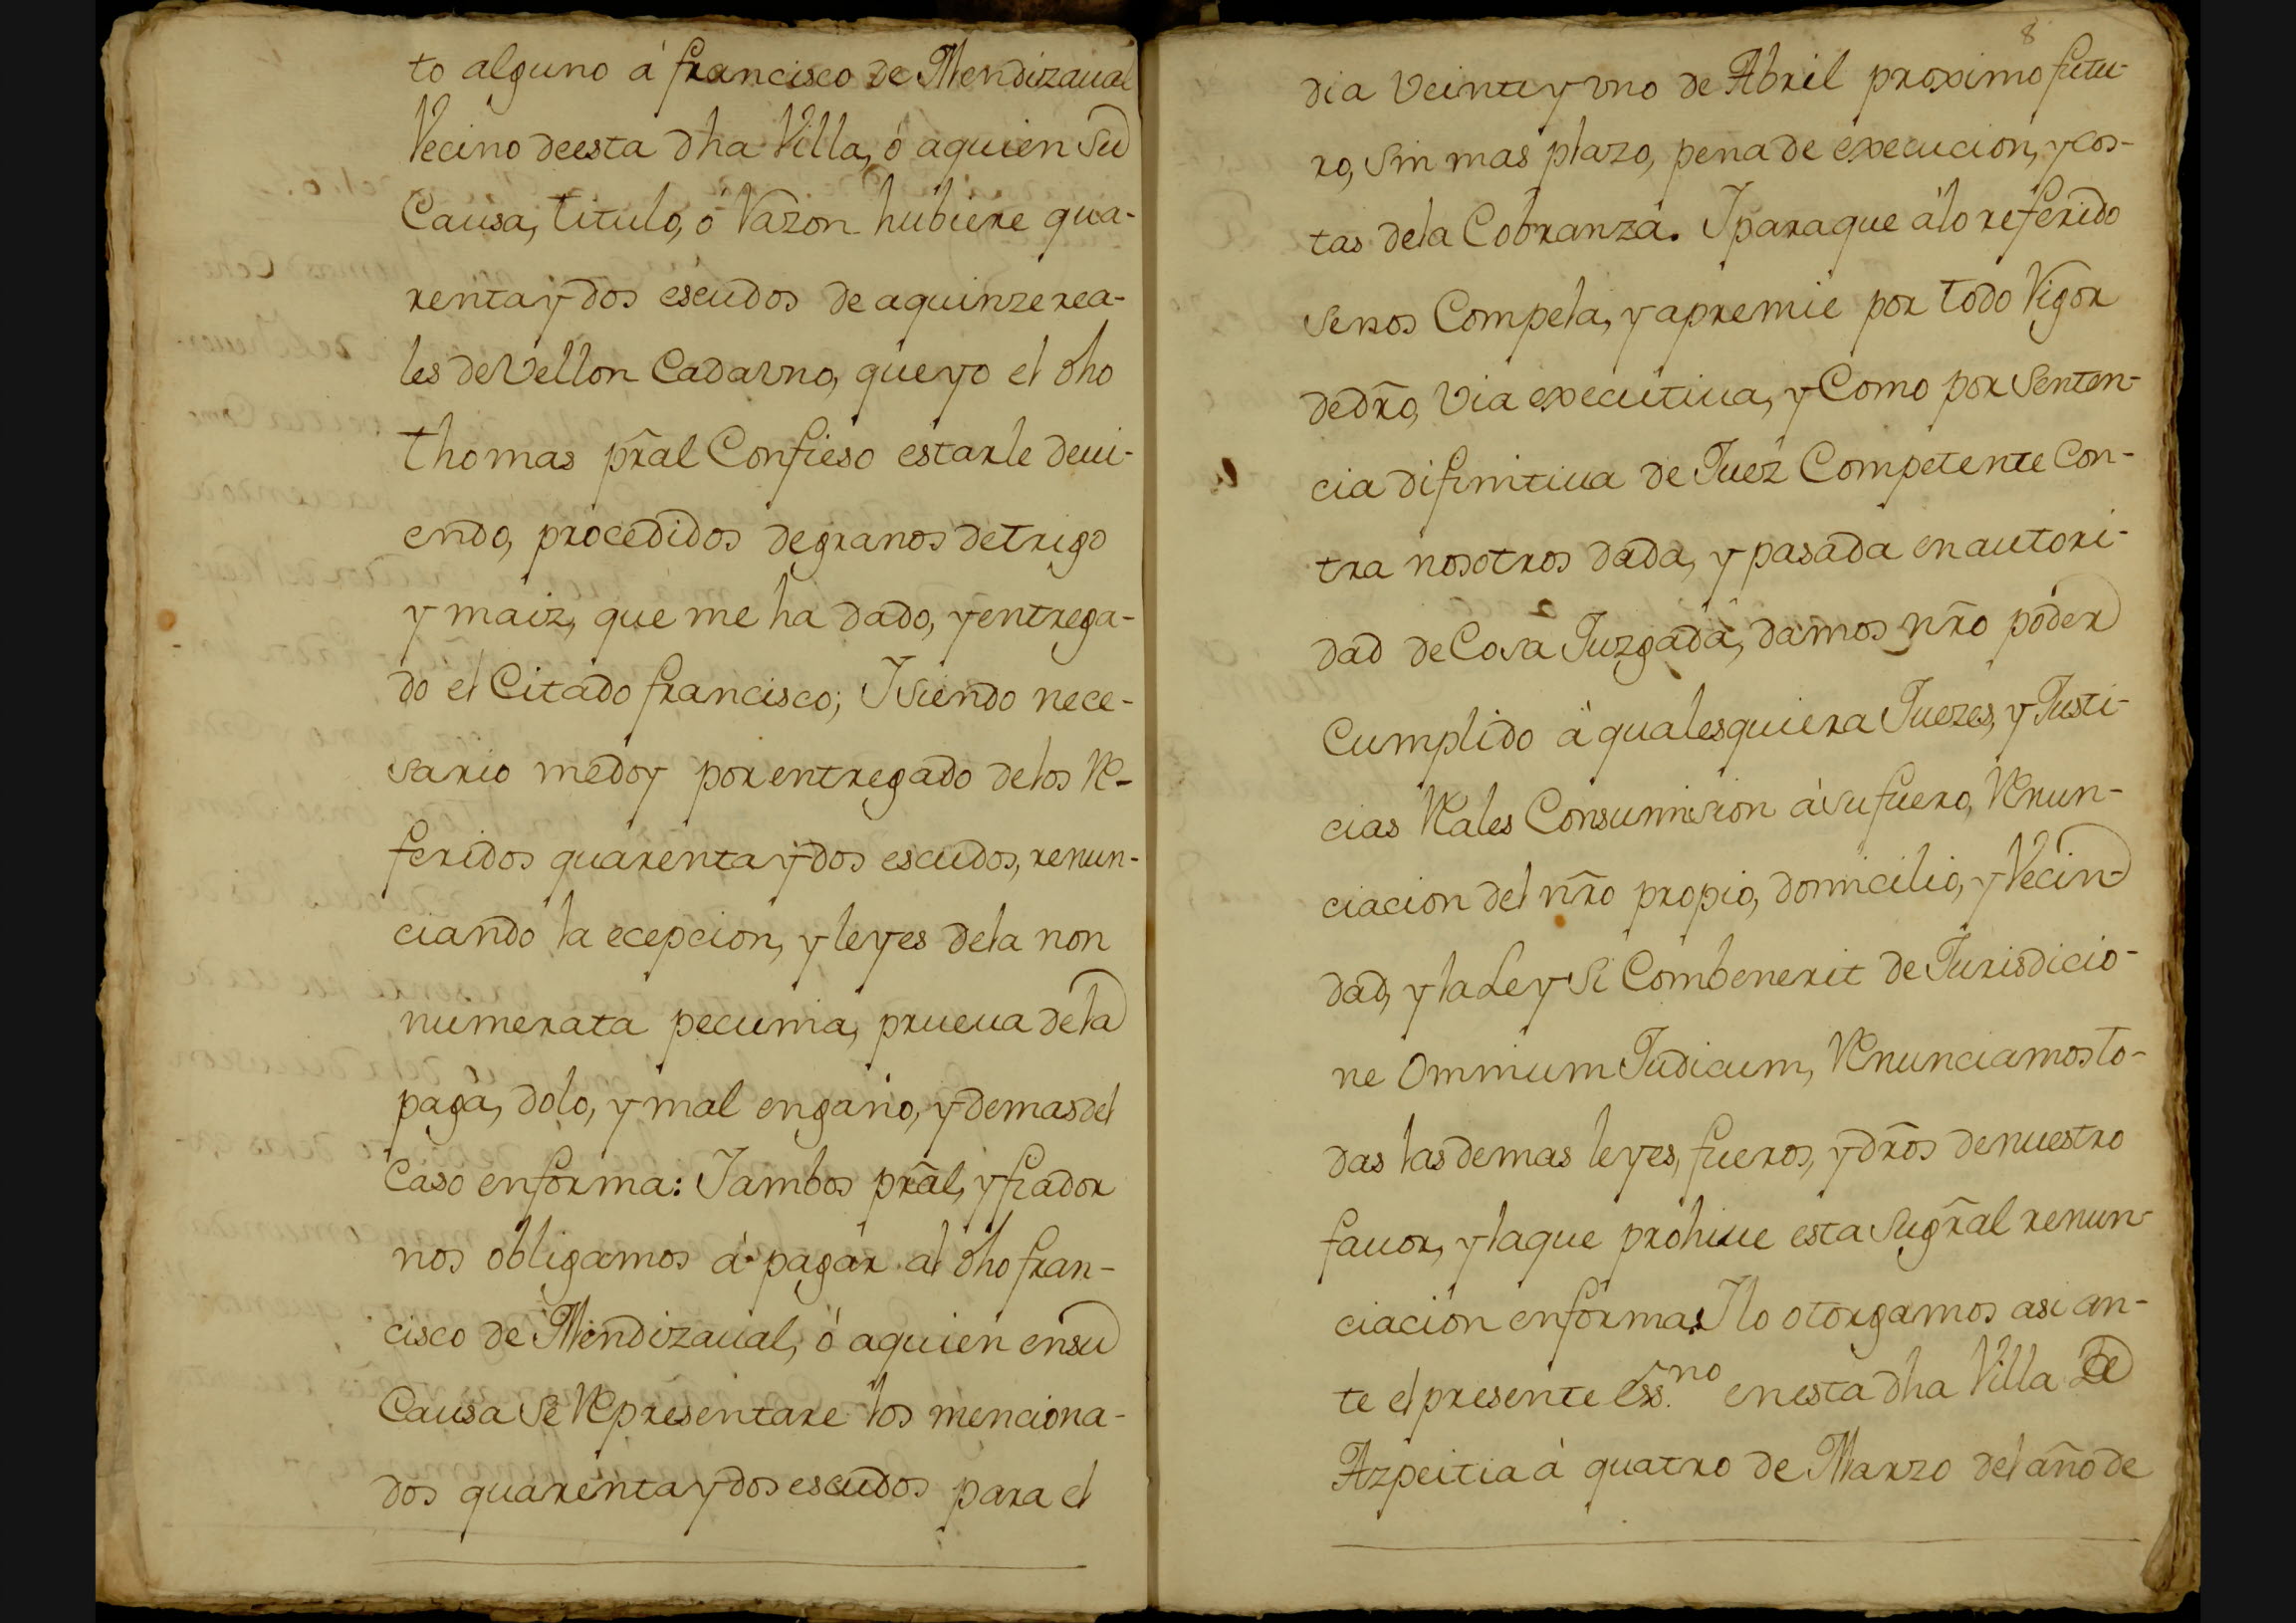 to alguno á francisco de Mendizaual
Vecino deesta dha Villa, ó aquien su
Causa, titulo, ó Razon hubiere qua-
renta y dos escudos de aquinze rea-
les de Vellon Cada vno, que yo el dho
thomas prãl Confieso estarle deui-
endo, procedidos de granos de trigo
y maiz, que me ha dado, y entrega-
do el Citado francisco; I siendo nece-
sario me doy por entregado de los Re-
feridos quarenta y dos escudos, renun-
ciando la ecepcion, y leyes dela non
numerata pecunia, prueua dela
paga, dolo, y mal engaño, y demas del
Caso en forma: I ambos prãl, y fiador
nos obligamos á pagar al dho fran-
cisco de Mendizaual, ó aquien en su
Causa se Representare los menciona-
dos quarenta y dos escudos para el
8
dia Veinte y vno de Abril proximo futu-
ro, sin mas plazo, pena de execucion, y cos-
tas dela Cobranza. I paraque álo referido
senos Compela, y apremie por todo Rigor
de drõ, Via executiua, y Como por senten-
cia difinitiua de Juez Competente Con-
tra nosotros dada, y pasada en autori-
dad de Cosa Juzgada, damos nrõ poder
Cumplido á qualesquiera Juezes, y Justi-
cias Reales Consumision ásu fuero, Renun-
ciacion del nrõ propio, domicilio, y Vecin-
dad, y la Ley Si Combenerit de Jurisdicio-
ne Omnium Judicum, Renunciamos to-
das las demas leyes, fueros, y drõs de nuestro
fauor, y laque prohiue esta su grãl renun-
ciacion en forma: I lo otorgamos asi an-
te el presente ess.no en esta dha Villa de
Azpeitia á quatro de Marzo del año de